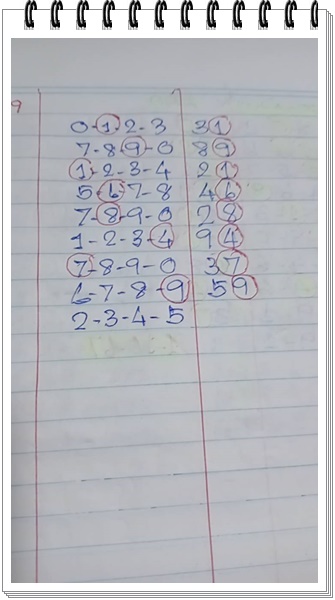 9
0-1-2-3 31
7-8-9-0 89
1-2-3-4 21
5-6-7-8 46
7-8-9-0 28
1-2-3-4 94
7-8-9-0 37
6-7-8-9 59
2-3-4-5